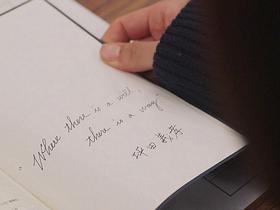 "Where there is a will,
there is a way"
坪田義彦